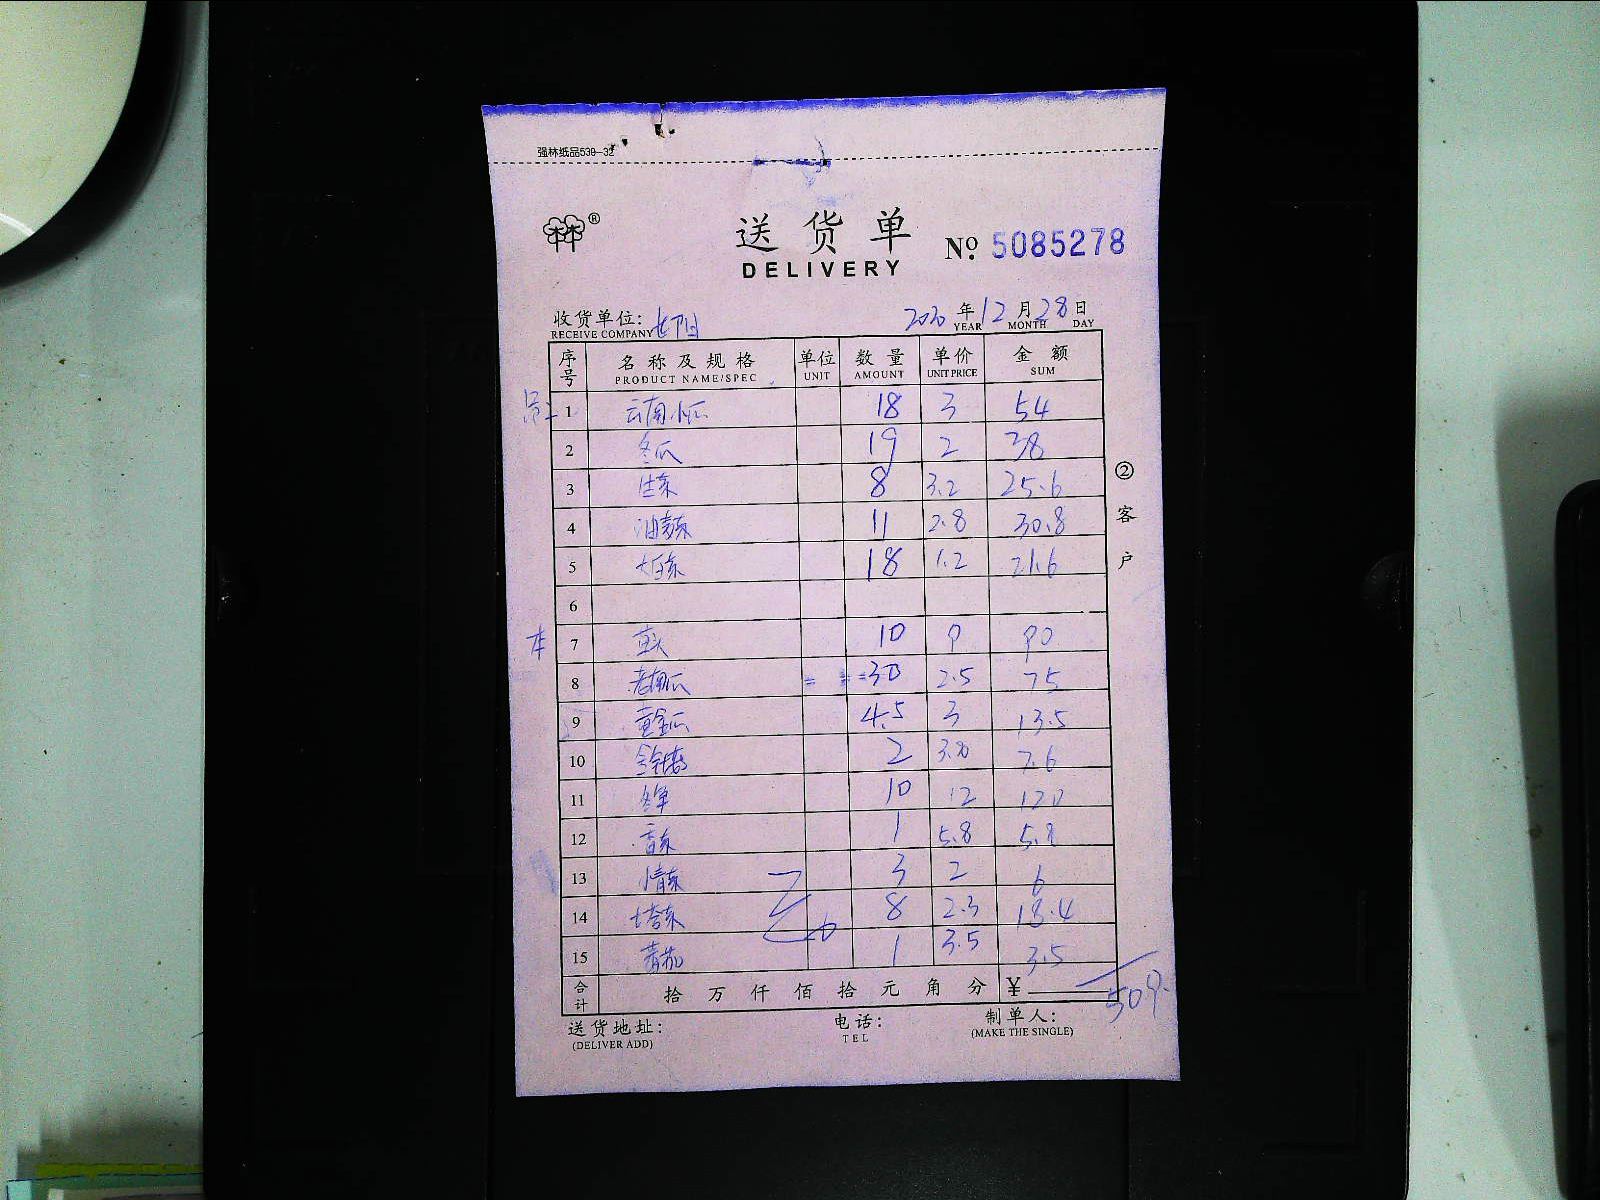 强林纸品530-32
®
送货单
DELIVERY
Nº. 5085278
收货单位:
RECEIVE COMPANY
2020年12月28日
YEAR MONTH DAY
序号 名称及规格 单位 数量 单价 金额
PRODUCT NAME/SPEC UNIT AMOUNT UNIT PRICE SUM
1 云南小瓜 18 3 54
2 冬瓜 19 2 38
3 生菜 8 3.2 25.6
4 油麦菜 11 2.8 30.8
5 大白菜 18 1.2 21.6
6
本 7 10 9 90
8 老南瓜 30 2.5 75
9 黄金瓜 4.5 3 13.5
10 金针菇 2 3.8 7.6
11 冬笋 10 12 120
12 香菜 1 5.8 5.8
13 3 2 6
14 塔菜 8 2.3 18.4
15 青茄 1 3.5 3.5
合计 拾万仟佰拾元角分 ¥ 509.
②客户
送货地址:
(DELIVER ADD)
电话:
TEL
制单人:
(MAKE THE SINGLE)